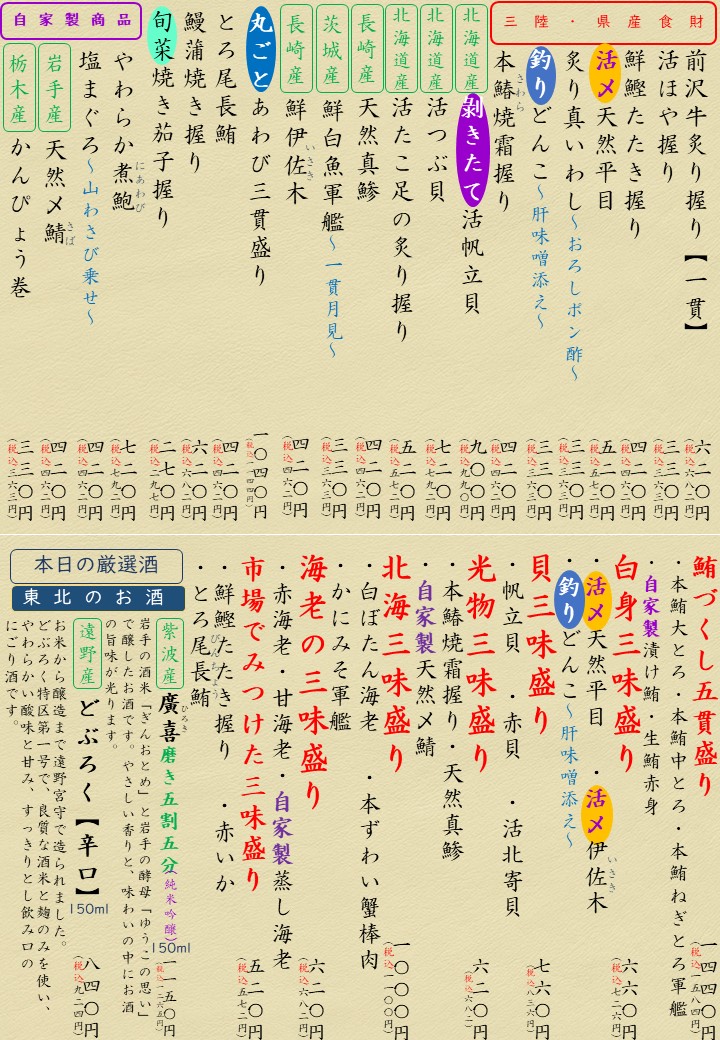 三陸・県産食財
前沢牛炙り握り【一貫】 六二〇円
(税込六八二円)
活ほや握り 三三〇円
(税込三六三円)
鮮鰹たたき握り 四二〇円
(税込四六二円)
活〆天然平目 五二〇円
(税込五七二円)
炙り真いわし～おろしポン酢～ 三三〇円
(税込三六三円)
釣りどんこ～肝味噌添え～ 三三〇円
(税込三六三円)
さわら
本鰆焼霜握り 四二〇円
(税込四六二円)
北海道産
剥きたて活帆立貝 九〇〇円
(税込九九〇円)
北海道産
活つぶ貝 七二〇円
(税込七九二円)
北海道産
活たこ足の炙り握り 五二〇円
(税込五七二円)
長崎産
天然真鯵 四二〇円
(税込四六二円)
茨城産
鮮白魚軍艦～一貫月見～ 三三〇円
(税込三六三円)
長崎産
いさき
鮮伊佐木 四二〇円
(税込四六二円)
丸ごとあわび三貫盛り 一〇四〇円
(税込一一四四円)
とろ尾長鮪 四二〇円
(税込四六二円)
鰻蒲焼き握り 六二〇円
(税込六八二円)
旬菜焼き茄子握り 二七〇円
(税込二九七円)
自家製商品
にあわび
やわらか煮鮑 七二〇円
(税込七九二円)
塩まぐろ～山わさび乗せ～ 四二〇円
(税込四六二円)
岩手産
さば
天然〆鯖 四二〇円
(税込四六二円)
栃木産
かんぴょう巻 三三〇円
(税込三六三円)
鮪づくし五貫盛り 一四四〇円
(税込一五八四円)
・本鮪大とろ・本鮪中とろ・本鮪ねぎとろ軍艦
・自家製漬け鮪・生鮪赤身
白身三味盛り 六六〇円
(税込七二六円)
・活〆天然平目 ・活〆伊佐木
いさき
・釣りどんこ～肝味噌添え～
貝三味盛り 七六〇円
(税込八三六円)
・帆立貝 ・赤貝 ・活北寄貝
光物三味盛り 六二〇円
(税込六八二)
・本鰆焼霜握り・天然真鯵
・自家製天然〆鯖
北海三味盛り 一〇〇〇円
(税込一一〇〇円)
・白ぼたん海老 ・本ずわい蟹棒肉
・かにみそ軍艦
海老の三味盛り 六二〇円
(税込六八二円)
・赤海老・甘海老・自家製蒸し海老
市場でみつけた三味盛り 五二〇円
(税込五七二円)
・鮮鰹たたき握り ・赤いか
びんちょう
・とろ尾長鮪
本日の厳選酒
東北のお酒
紫波産
ひろき
廣喜磨き五割五分(純米吟醸)150ml 一一五〇円
(税込一二六五円)
岩手の酒米「ぎんおとめ」と岩手の酵母「ゆうこの思い」
で醸したお酒です。やさしい香りと、味わいの中にお酒
の旨味が光ります。
遠野産
どぶろく【辛口】150ml 八四〇円
(税込九二四円)
お米から醸造まで遠野宮守で造られました。
どぶろく特区第一号で、良質な酒米と麹のみを使い、
やわらかい酸味と甘み、すっきりとし飲み口の
にごり酒です。